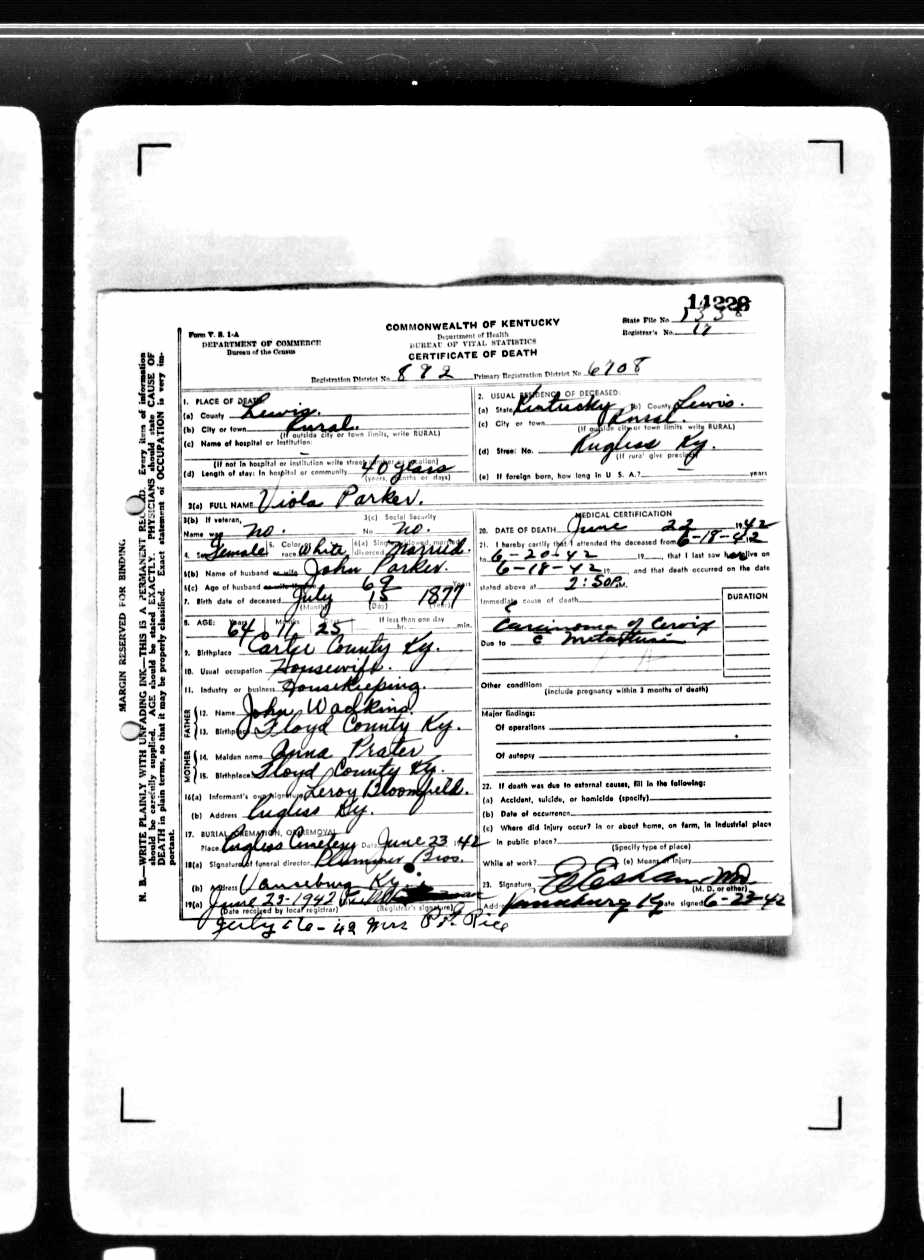 14228
State File No. 1338
Registrar's No. 17
Form V. S. 1-A
DEPARTMENT OF COMMERCE
Bureau of the Census
COMMONWEALTH OF KENTUCKY
Department of Health
BUREAU OF VITAL STATISTICS
CERTIFICATE OF DEATH
Registration District No. 892 Primary Registration District No. 6708
MARGIN RESERVED FOR BINDING
N. B.—WRITE PLAINLY WITH UNFADING INK—THIS IS A PERMANENT RECORD. Every item of information
should be carefully supplied. AGE should be stated EXACTLY. PHYSICIANS should state CAUSE OF
DEATH in plain terms, so that it may be properly classified. Exact statement of OCCUPATION is very im-
portant.
1. PLACE OF DEATH
(a) County Lewis.
(b) City or town Rural.
(If outside city or town limits, write RURAL)
(c) Name of hospital or institution:
(If not in hospital or institution write street number or location)
(d) Length of stay: In hospital or community 40 years
(years, months or days)
2. USUAL RESIDENCE OF DECEASED:
(a) State Kentucky (b) County Lewis.
(c) City or town Rural.
(If outside city or town limits write RURAL)
(d) Street No. Rugless Ky.
(If rural give precinct)
(e) If foreign born, how long in U. S. A.? years
3(a) FULL NAME Viola Parker.
3(b) If veteran,
Name war no.
3(c) Social Security
No. no.
4. Sex Female 5. Color or race White 6(a) Single, widowed, married, divorced Married.
6(b) Name of husband or wife John Parker.
6(c) Age of husband or wife if alive 69 Years
7. Birth date of deceased July 15 1877
(Month) (Day) (Year)
8. AGE: Years Months Days If less than one day
64 11 25 hr. min.
9. Birthplace Carter County Ky.
10. Usual occupation Housewife.
11. Industry or business Housekeeping.
FATHER
12. Name John Wadkins
13. Birthplace Floyd County Ky.
MOTHER
14. Maiden name Anna Prater
15. Birthplace Floyd County Ky.
16(a) Informant's own signature Leroy Bloomfield.
(b) Address Rugless Ky.
17. BURIAL, CREMATION, OR REMOVAL
Place Rugless Cemetery Date June 23 1942
18(a) Signature of funeral director Plummer Bros.
(b) Address Vanceburg Ky.
19(a) June 29-1942
(Date received by local registrar) (Registrar's signature)
July 16-42 Mrs Rice
MEDICAL CERTIFICATION
20. DATE OF DEATH June 22 1942
21. I hereby certify that I attended the deceased from 6-18-42
to 6-20-42 19 , that I last saw her alive on
6-18-42 19 and that death occurred on the date
stated above at 2:50 P.M.
Immediate cause of death DURATION
Carcinoma of Cervix
Due to c Metastasis
Other conditions
(include pregnancy within 3 months of death)
Major findings:
Of operations
Of autopsy
22. If death was due to external causes, fill in the following:
(a) Accident, suicide, or homicide (specify)
(b) Date of occurrence
(c) Where did injury occur? in or about home, on farm, in industrial place
in public place?
(Specify type of place)
While at work? (e) Means of injury
23. Signature M.D.
(M. D. or other)
Address Vanceburg Ky Date signed 6-23-42